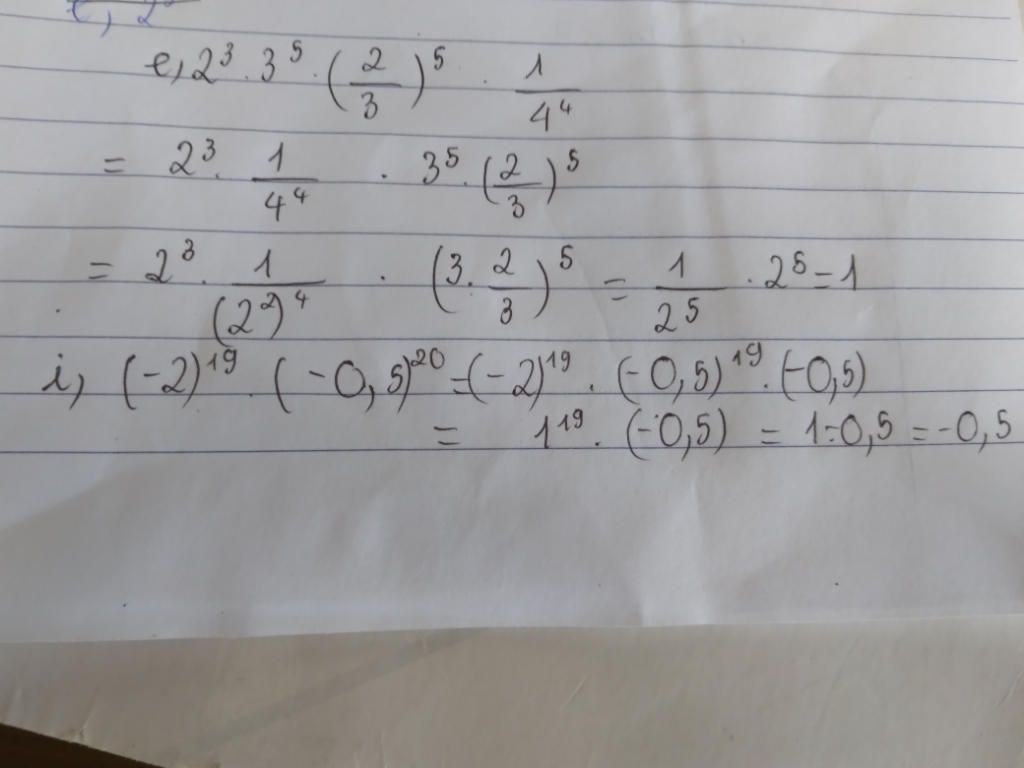 e, 2³ . 3⁵ . (2/3)⁵ . 1/4⁴
= 2³ . 1/4⁴ . 3⁵ . (2/3)⁵
= 2³ . 1/(2²)⁴ . (3 . 2/3)⁵ = 1/2⁵ . 2⁵ = 1
i, (-2)¹⁹ . (-0,5)²⁰ = (-2)¹⁹ . (-0,5)¹⁹ . (-0,5)
= 1¹⁹ . (-0,5) = 1.-0,5 = -0,5